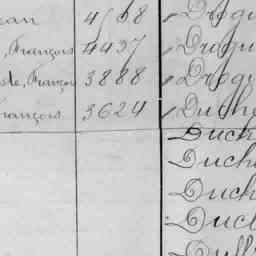 ean 4568 Drogu
, François 4437 Drogu
de, François 3888 Drogu
rançois 3624 Duche
Duch
Duch
Duch
Ducl